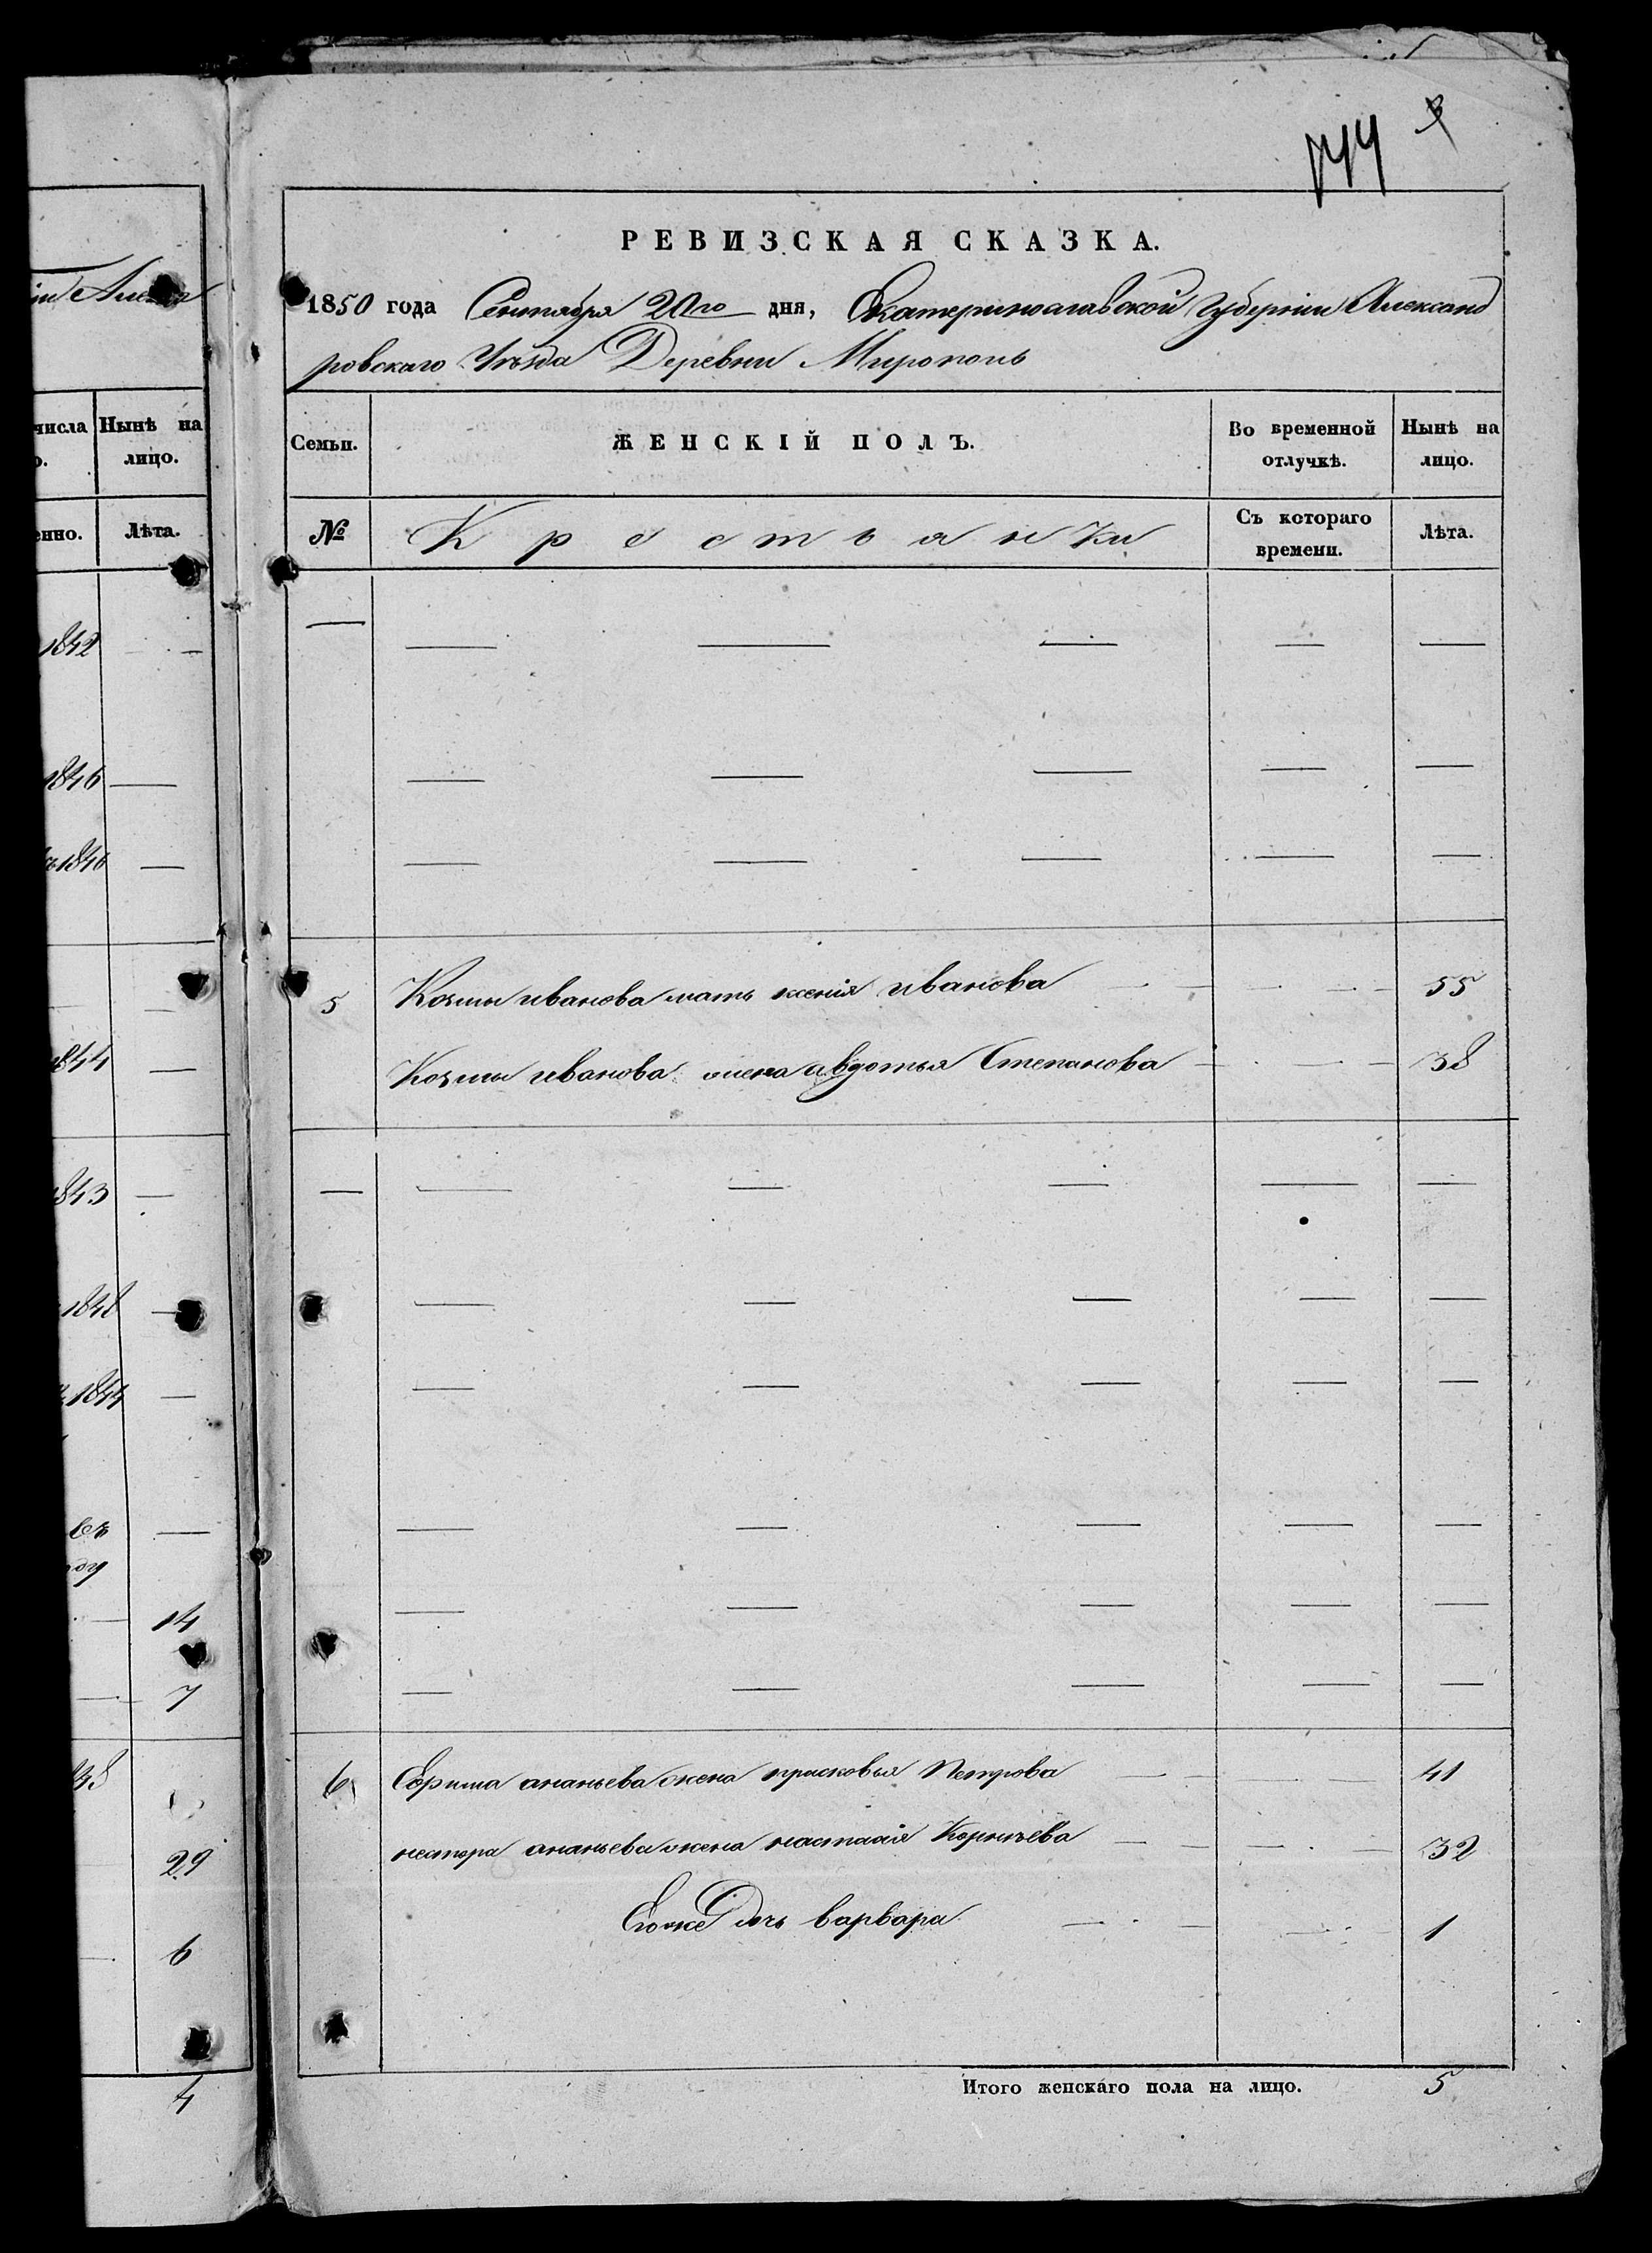 744 3
РЕВИЗСКАЯ СКАЗКА.
1850 года Сентября 20го дня, Екатеринославской Губерніи Александ
ровскаго Уѣзда Деревни Мирополь
числа Нынѣ на
лицо.
Лѣта.
Семьи. ЖЕНСКІЙ ПОЛЪ. Во временной отлучкѣ. Нынѣ на лицо.
№ Крестьянки Съ котораго времени. Лѣта.
1842 —
1846 —
1846 —
5 Козмы иванова мать ксенія иванова 55
1844 —
Козмы иванова жена авдотья Степанова 38
1843 —
1848 —
1844 —
14
7
6 Ефима ананьева жена прасковья Петрова 41
29
нестора ананьева жена настасія Корнѣева 32
Егоже дочь варвара 1
6
Итого женскаго пола на лицо. 5
4